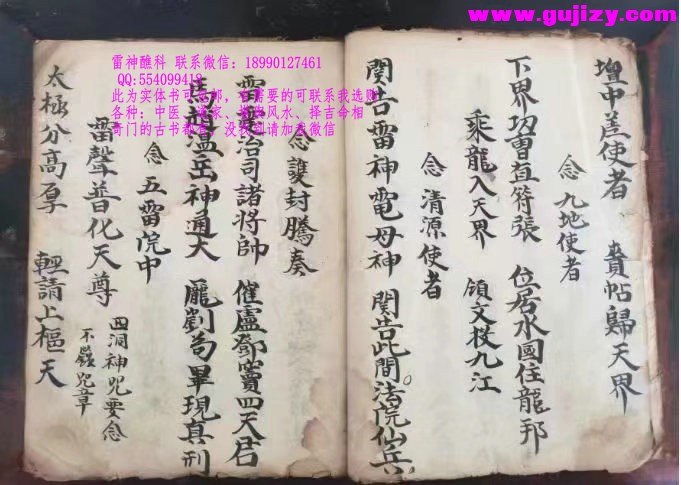 www.gujizy.com
雷神醮科 联系微信：18990127461
QQ:554099413
此为实体书可包邮，有需要的可联系我选购
各种：中医、道家、
风水、择吉命相
奇门的古书都有，没找到请加我微信
壇中差使者 賫帖歸天界
念九地使者
下界功曹直符張 位居水國住龍邦
乘龍入天界 領文杖九江
念清源使者
関告雷神電母神 関告此間法院仙兵
念護封騰奏
雷霆治司諸將帥 催盧鄧竇四天君
馬趙溫岳神通大 龐劉苟畢現真刑
念五雷院中
雷聲普化天尊 四洞神咒要念
不 咒章
太極分高厚 輕請上樞天